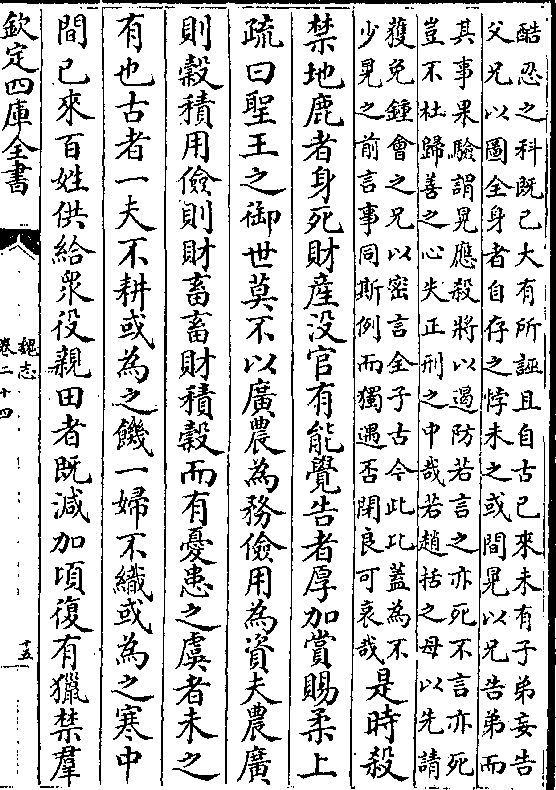 酷忍之科既已大有所誣且自古已來未有子弟妄告
父兄以圖全身者自存之悖未之或聞晃以兄告弟而
其事果驗謂晃應殺將以遏防若言之亦死不言亦死
豈不杜歸善之心失正刑之中哉若趙括之母以先請
獲免鍾會之兄以密言全子古今此比蓋為不
少晃之前言事同斯例而獨遇否閉良可哀哉
是時殺
禁地鹿者身死財產没官有能覺告者厚加賞賜柔上
疏曰聖王之御世莫不以廣農為務儉用為資夫農廣
則穀積用儉則財畜畜財積穀而有憂患之虞者未之
有也古者一夫不耕或為之饑一婦不織或為之寒中
間已來百姓供給衆役親田者既減加頃復有獵禁羣
欽定四庫全書
魏志
卷二十四
十五